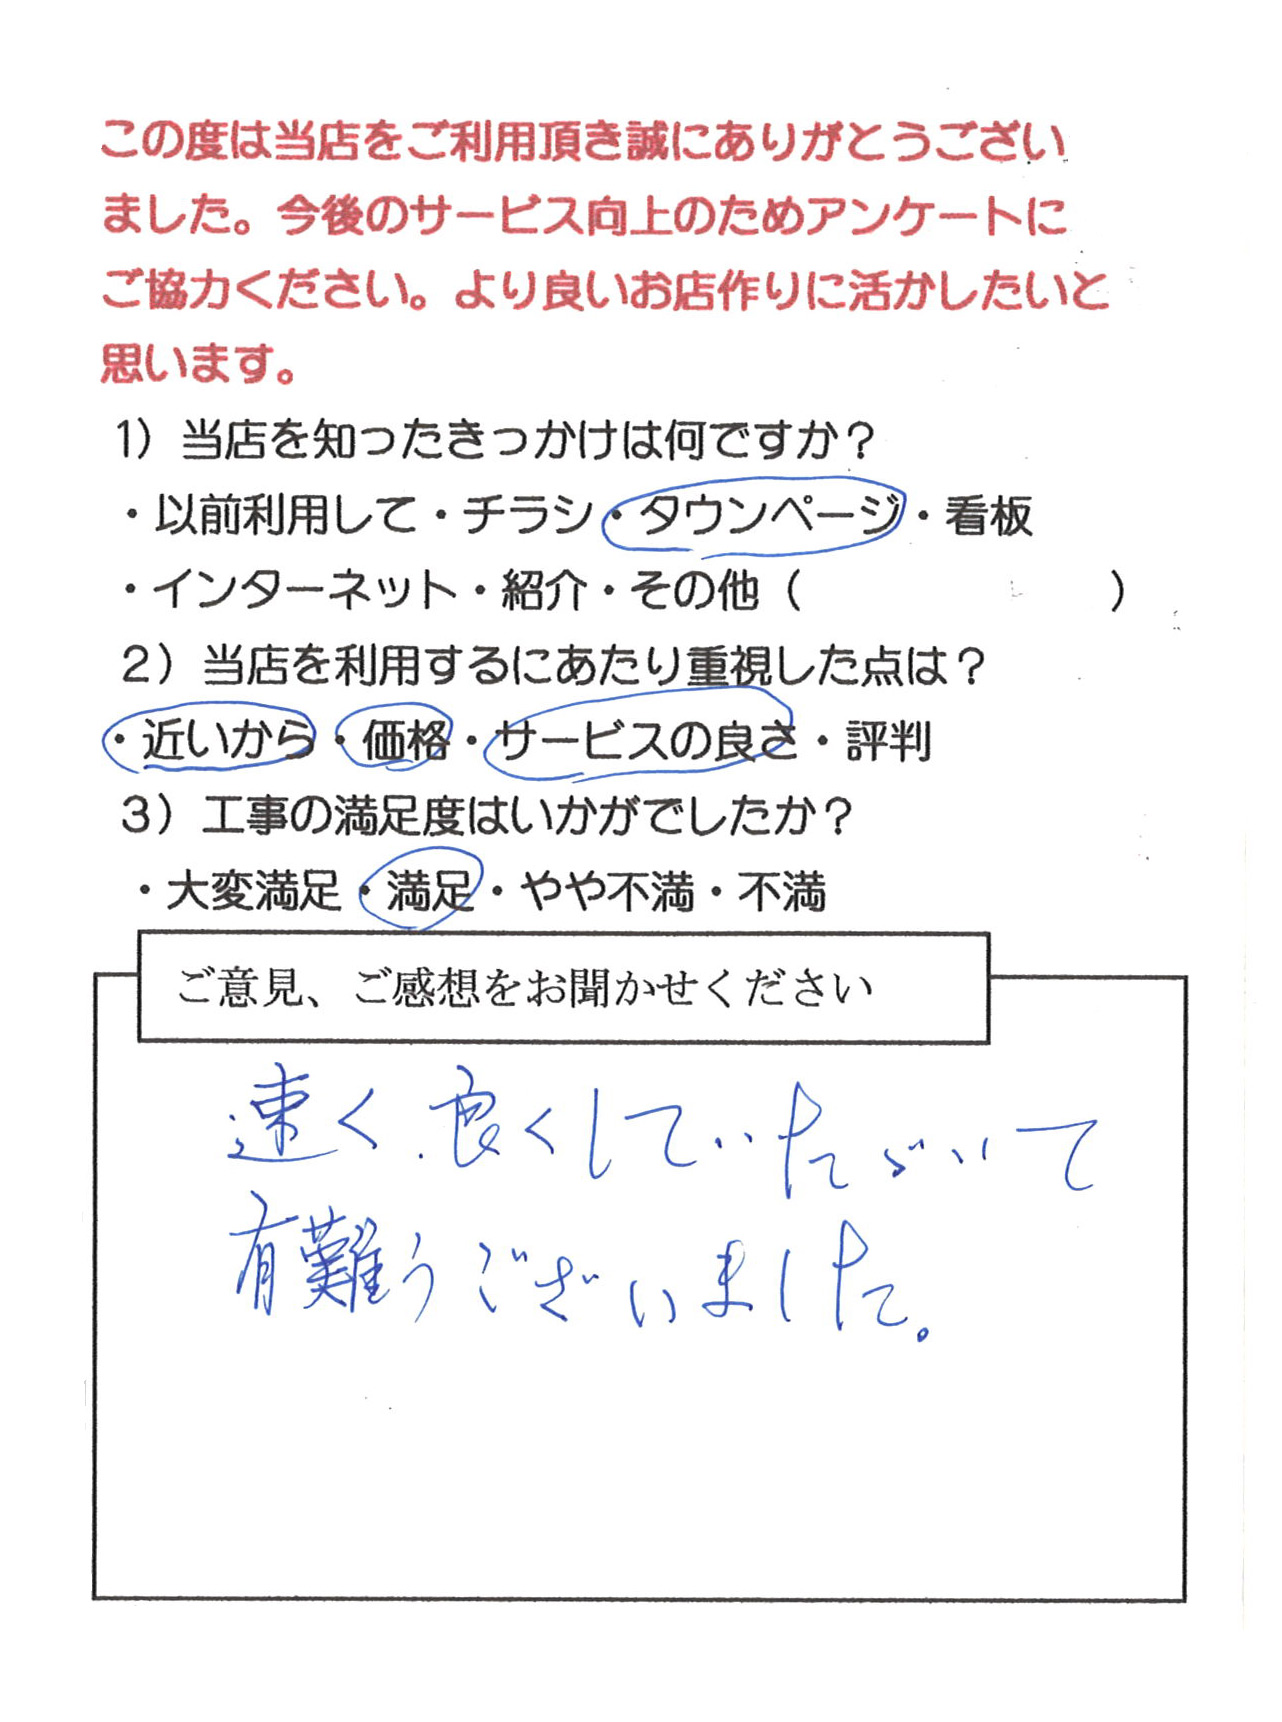 この度は当店をご利用頂き誠にありがとうござい
ました。今後のサービス向上のためアンケートに
ご協力ください。より良いお店作りに活かしたいと
思います。
1）当店を知ったきっかけは何ですか？
・以前利用して・チラシ・タウンページ・看板
・インターネット・紹介・その他（　　　　　　　）
2）当店を利用するにあたり重視した点は？
・近いから・価格・サービスの良さ・評判
3）工事の満足度はいかがでしたか？
・大変満足・満足・やや不満・不満
ご意見、ご感想をお聞かせください
速く、良くしていただいて
有難うございました。